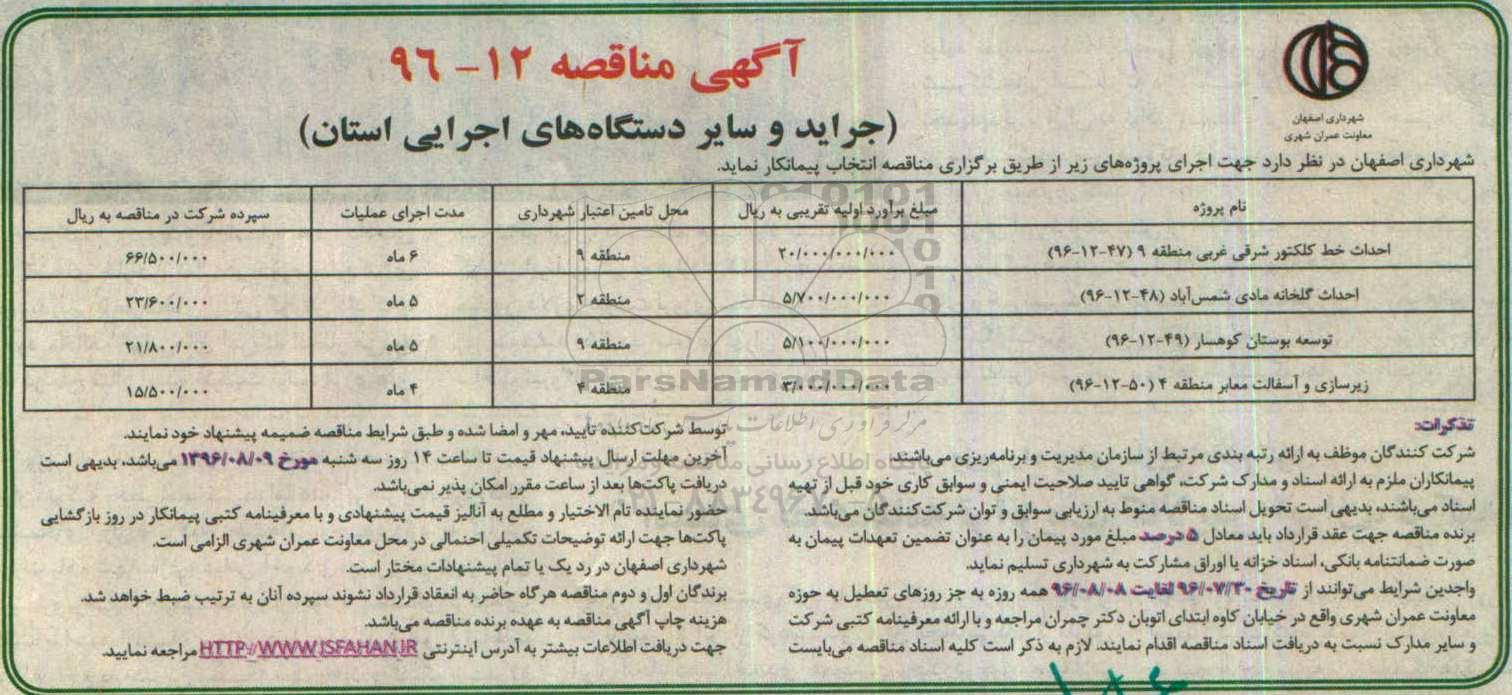 شهرداری اصفهان
معاونت عمران شهری
آگهی مناقصه ۱۲- ۹۶
(جراید و سایر دستگاه‌های اجرایی استان)
شهرداری اصفهان در نظر دارد جهت اجرای پروژه‌های زیر از طریق برگزاری مناقصه انتخاب پیمانکار نماید.
نام پروژه مبلغ برآورد اولیه تقریبی به ریال محل تامین اعتبار شهرداری مدت اجرای عملیات سپرده شرکت در مناقصه به ریال
احداث خط کلکتور شرقی غربی منطقه ۹ (۴۷-۱۲-۹۶) ۲۰/۰۰۰/۰۰۰/۰۰۰ منطقه ۹ ۶ ماه ۶۶/۵۰۰/۰۰۰
احداث گلخانه مادی شمس‌آباد (۴۸-۱۲-۹۶) ۵/۷۰۰/۰۰۰/۰۰۰ منطقه ۲ ۵ ماه ۲۳/۶۰۰/۰۰۰
توسعه بوستان کوهسار (۴۹-۱۲-۹۶) ۵/۱۰۰/۰۰۰/۰۰۰ منطقه ۹ ۵ ماه ۲۱/۸۰۰/۰۰۰
زیرسازی و آسفالت معابر منطقه ۴ (۵۰-۱۲-۹۶) ۳/۰۰۰/۰۰۰/۰۰۰ منطقه ۴ ۴ ماه ۱۵/۵۰۰/۰۰۰
تذکرات:
شرکت کنندگان موظف به ارائه رتبه بندی مرتبط از سازمان مدیریت و برنامه‌ریزی می‌باشند.
پیمانکاران ملزم به ارائه اسناد و مدارک شرکت، گواهی تایید صلاحیت ایمنی و سوابق کاری خود قبل از تهیه
اسناد می‌باشند، بدیهی است تحویل اسناد مناقصه منوط به ارزیابی سوابق و توان شرکت‌کنندگان می‌باشد.
برنده مناقصه جهت عقد قرارداد باید معادل ۵ درصد مبلغ مورد پیمان را به عنوان تضمین تعهدات پیمان به
صورت ضمانتنامه بانکی، اسناد خزانه یا اوراق مشارکت به شهرداری تسلیم نماید.
واجدین شرایط می‌توانند از تاریخ ۹۶/۰۷/۳۰ لغایت ۹۶/۰۸/۰۸ همه روزه به جز روزهای تعطیل به حوزه
معاونت عمران شهری واقع در خیابان کاوه ابتدای اتوبان دکتر چمران مراجعه و با ارائه معرفینامه کتبی شرکت
و سایر مدارک نسبت به دریافت اسناد مناقصه اقدام نمایند. لازم به ذکر است کلیه اسناد مناقصه می‌بایست
توسط شرکت‌کننده تأیید، مهر و امضا شده و طبق شرایط مناقصه ضمیمه پیشنهاد خود نمایند.
آخرین مهلت ارسال پیشنهاد قیمت تا ساعت ۱۴ روز سه شنبه مورخ ۱۳۹۶/۰۸/۰۹ می‌باشد، بدیهی است
دریافت پاکت‌ها بعد از ساعت مقرر امکان پذیر نمی‌باشد.
حضور نماینده تام الاختیار و مطلع به آنالیز قیمت پیشنهادی و با معرفینامه کتبی پیمانکار در روز بازگشایی
پاکت‌ها جهت ارائه توضیحات تکمیلی احتمالی در محل معاونت عمران شهری الزامی است.
شهرداری اصفهان در رد یک یا تمام پیشنهادات مختار است.
برندگان اول و دوم مناقصه هرگاه حاضر به انعقاد قرارداد نشوند سپرده آنان به ترتیب ضبط خواهد شد.
هزینه چاپ آگهی مناقصه به عهده برنده مناقصه می‌باشد.
جهت دریافت اطلاعات بیشتر به آدرس اینترنتی HTTP://WWW.ISFAHAN.IR مراجعه نمایید.
ParsNamadData